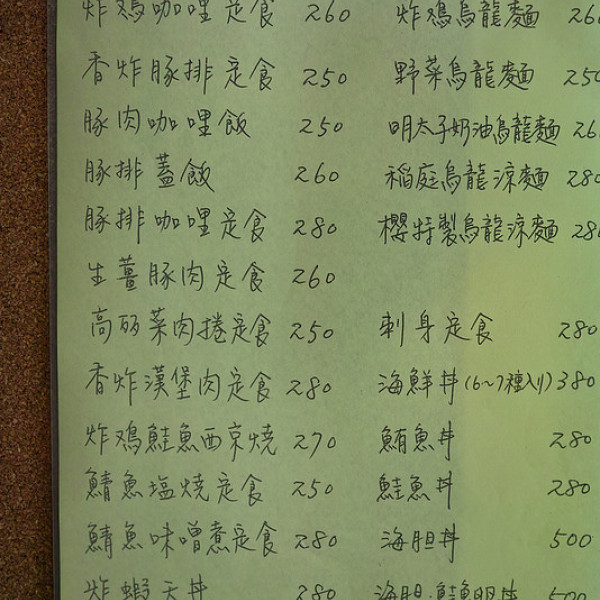 炸鳮咖哩定食 260
香炸豚排定食 250
豚肉咖哩飯 250
豚排蓋飯 260
豚排咖哩定食 280
生薑豚肉定食 260
高丽菜肉捲定食 250
香炸漢堡肉定食 280
炸鳮鮭魚西京燒 270
鯖魚塩燒定食 250
鯖魚味噌煮定食 280
炸蝦天丼 280
炸鳮烏龍麵 260
野菜烏龍麵 250
明太子奶油烏龍麵 26
稻庭烏龍涼麵 280
櫻特製烏龍涼麵 280
刺身定食 280
海鮮丼(6~7種入り) 380
鮪魚丼 280
鮭魚丼 280
海胆丼 500
海胆·鮭魚卵丼 500